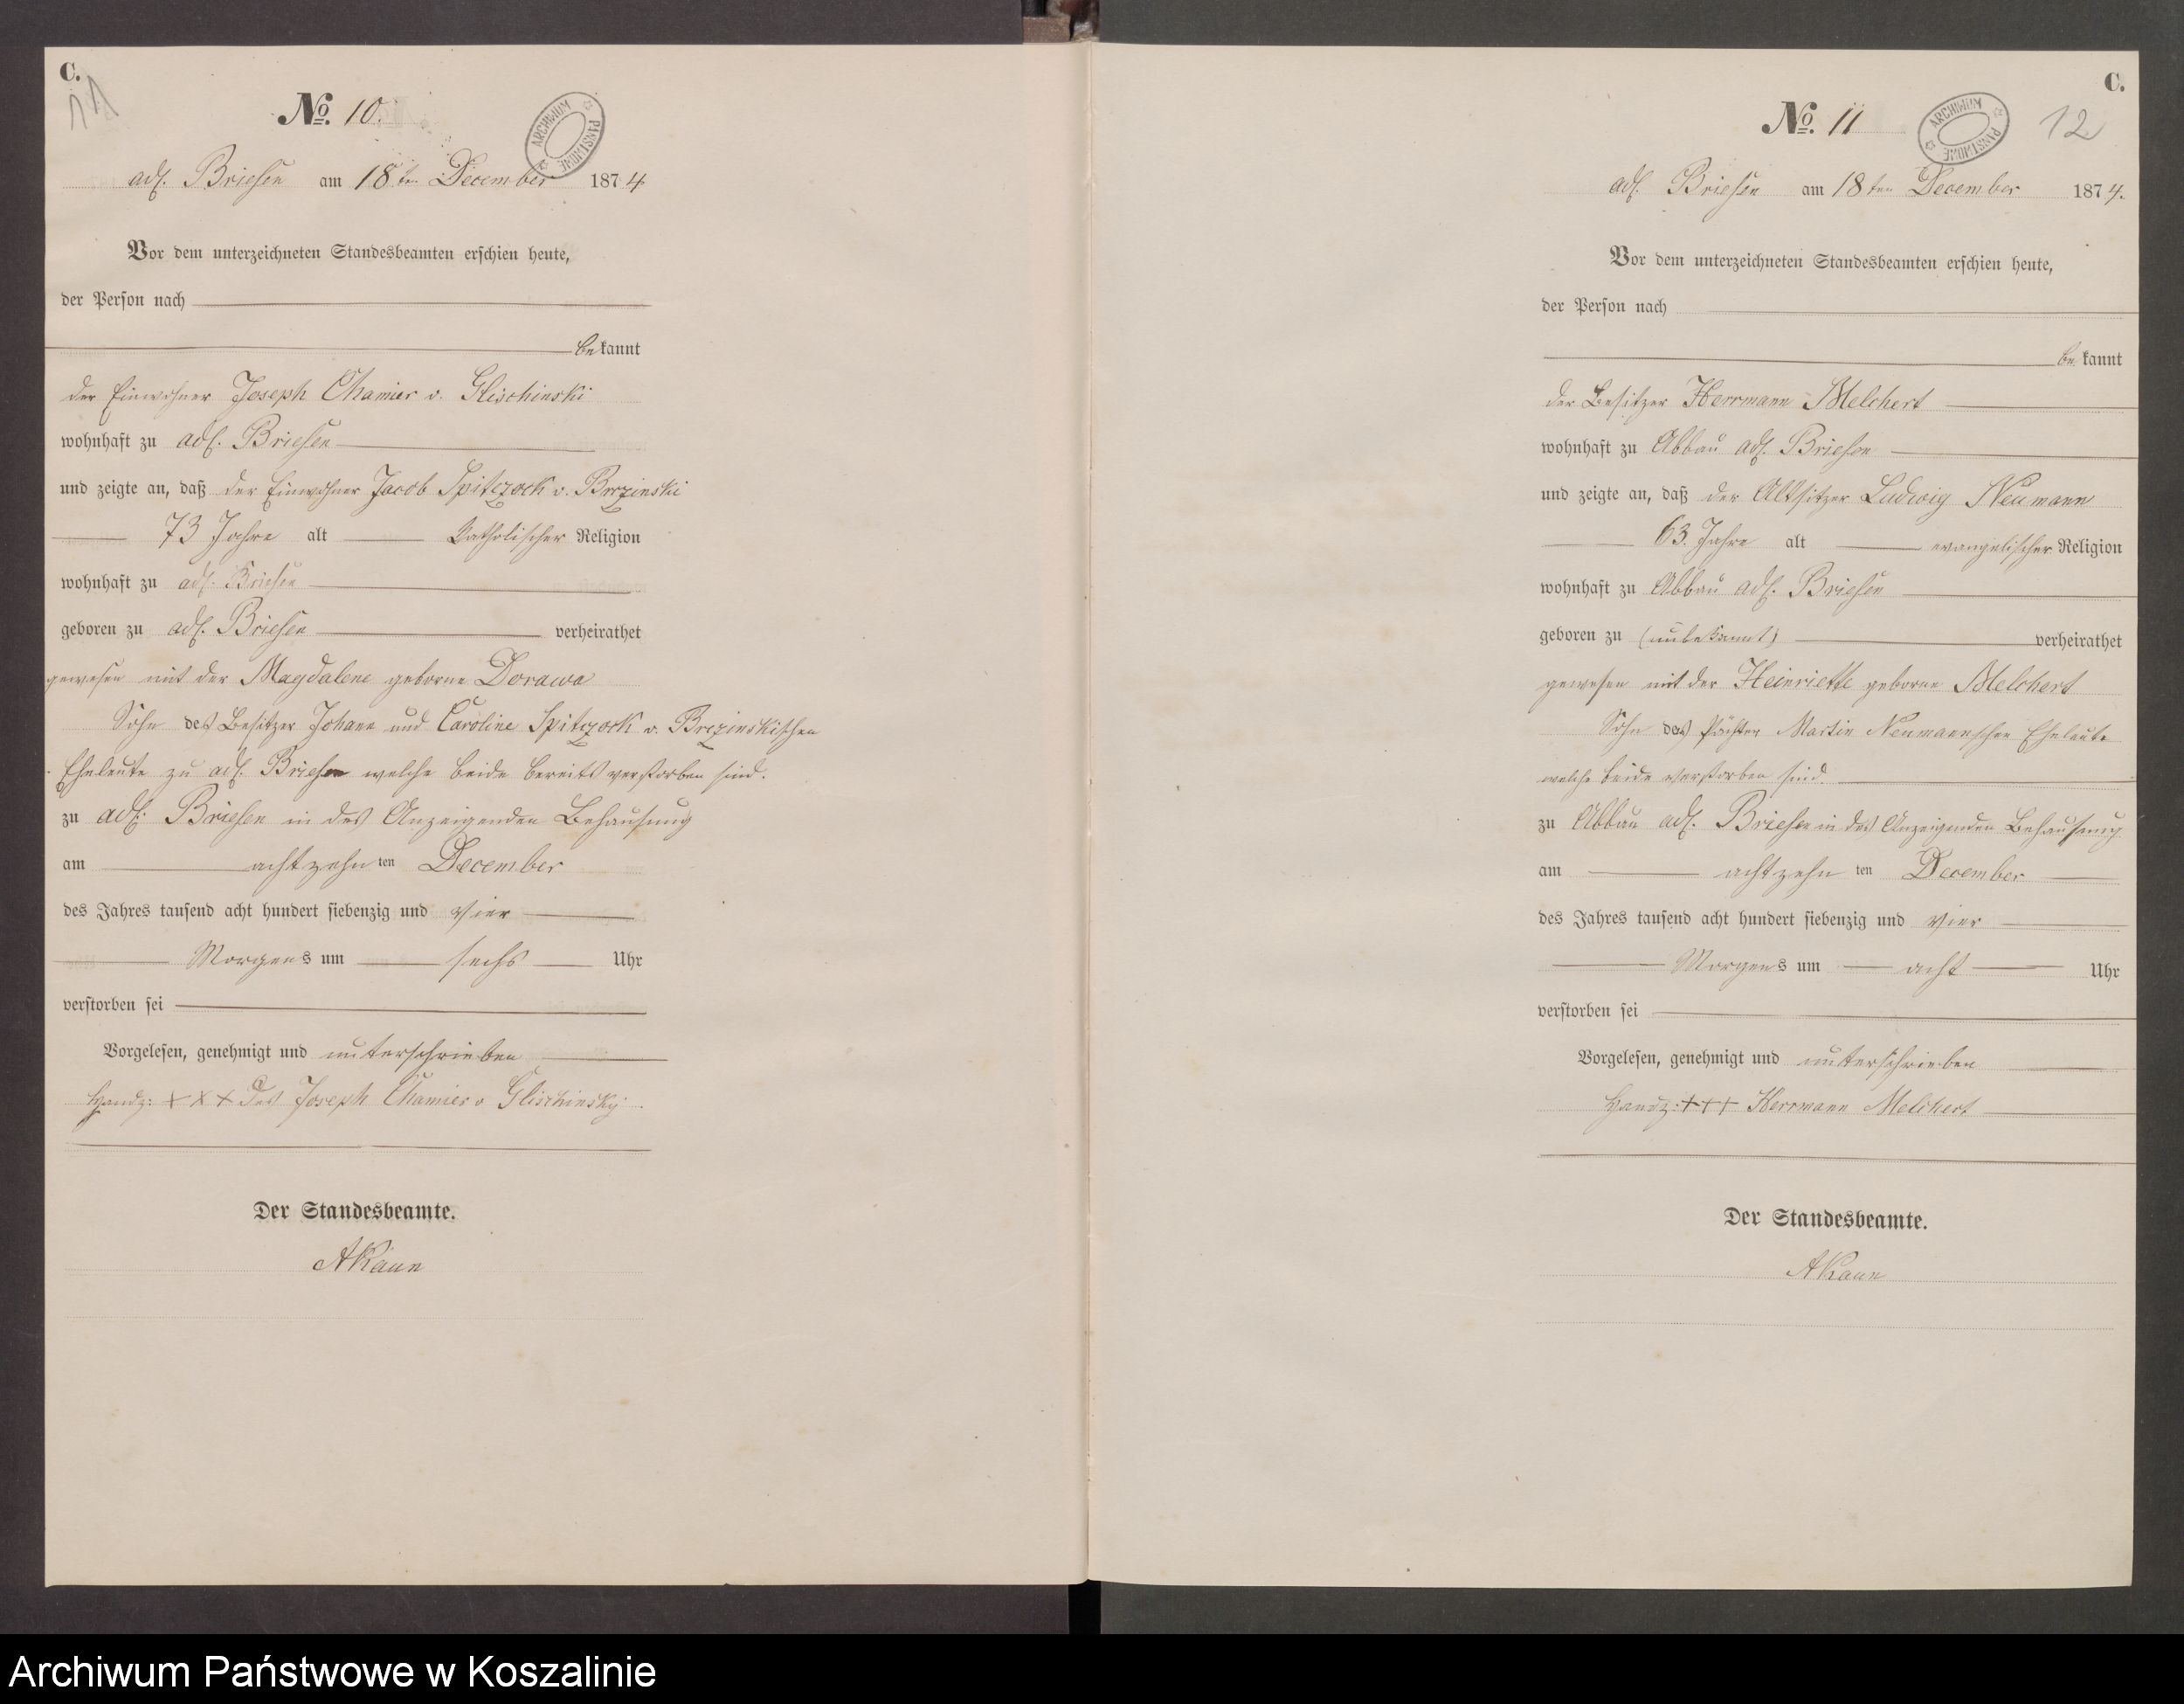 C.
11
No. 10.
ARCHIWUM PAŃSTWOWE
adl. Briesen am 18ten December 1874
Vor dem unterzeichneten Standesbeamten erschien heute,
der Person nach
bekannt
der Einwohner Joseph Chamier v. Glischinski
wohnhaft zu adl. Briesen
und zeigte an, daß der Einwohner Jacob Spitczock v. Brezinski
73 Jahre alt Katholischer Religion
wohnhaft zu adl. Briesen
geboren zu adl. Briesen verheirathet
gewesen mit der Magdalene geborne Dorawa
Sohn des Besitzer Johann und Caroline Spitczock v. Brezinskischen
Eheleute zu adl. Briesen welche beide bereits verstorben sind.
zu adl. Briesen in des Anzeigenden Behausung
am achtzehnten December
des Jahres tausend acht hundert siebenzig und vier
Morgens um sechs Uhr
verstorben sei
Vorgelesen, genehmigt und unterschrieben
Handz: + x + des Joseph Chamier v Glischinsky
Der Standesbeamte.
AKaun
C.
12
No. 11
ARCHIWUM PAŃSTWOWE
adl. Briesen am 18ten December 1874.
Vor dem unterzeichneten Standesbeamten erschien heute,
der Person nach
bekannt
der Besitzer Herrmann Melchert
wohnhaft zu Abbau adl. Briesen
und zeigte an, daß der Altsitzer Ludwig Neumann
63. Jahre alt evangelischer Religion
wohnhaft zu Abbau adl. Briesen
geboren zu (unbekannt) verheirathet
gewesen mit der Heinriette geborne Melchert
Sohn des Pächter Martin Neumannschen Eheleute
welche beide verstorben sind.
zu Abbau adl. Briesen in des Anzeigenden Behausung
am achtzehn ten December
des Jahres tausend acht hundert siebenzig und vier
Morgens um acht Uhr
verstorben sei
Vorgelesen, genehmigt und unterschrieben
Handz: +++ Herrmann Melchert
Der Standesbeamte.
AKaun
Archiwum Państwowe w Koszalinie